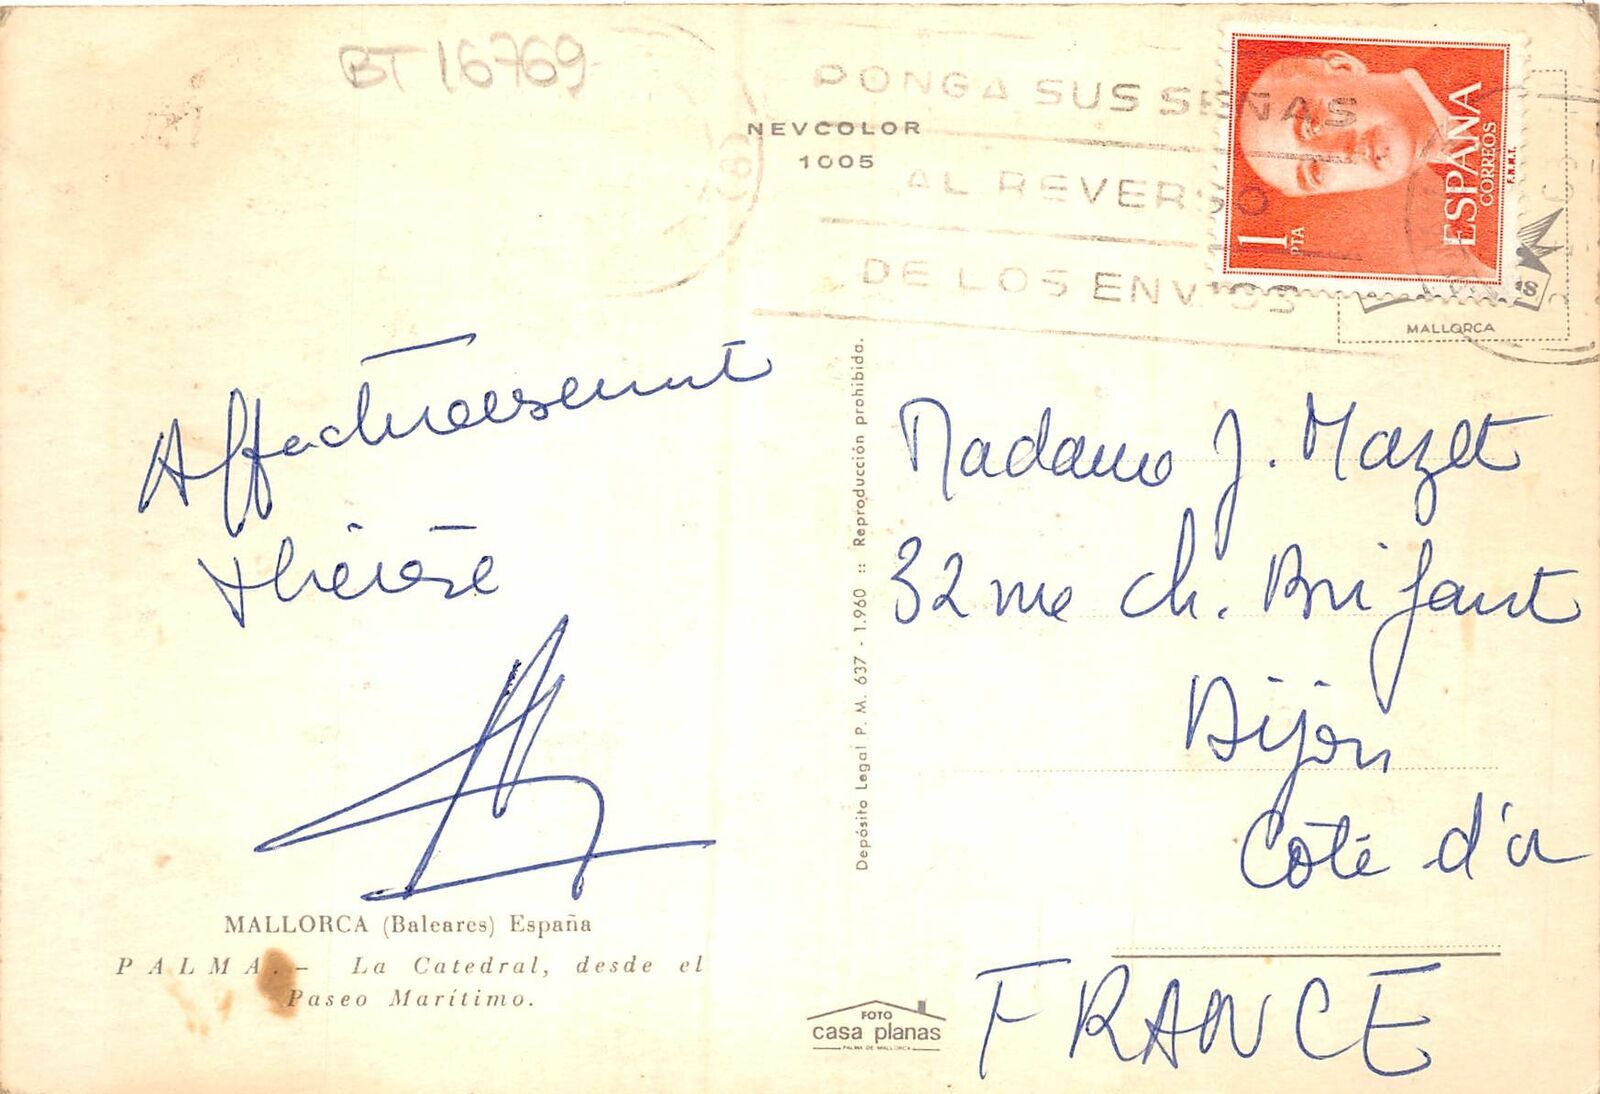 BT 16769
NEVCOLOR
1005
PONGA SUS SEÑAS
AL REVERSO
DE LOS ENVIOS
ESPAÑA
CORREOS
F.N.M.T.
1 PTA
MALLORCA
Affectueusement
Thérèse
Madame J. Mazet
32 me ch. Brifaut
Dijon
Côte d'or
FRANCE
Depósito Legal P. M. 637 - 1.960 :: Reproducción prohibida.
MALLORCA (Baleares) España
PALMA.- La Catedral, desde el
Paseo Marítimo.
FOTO
casa planas
PALMA DE MALLORCA